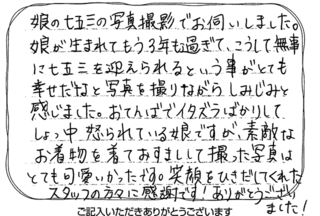 娘の七五三の写真撮影でお伺いしました。
娘が生まれてもう3年も過ぎて、こうして無事
に七五三を迎えられるという事がとても
幸せだねと写真を撮りながらしみじみと
感じました。おてんばでイタズラばかりして
しょっ中怒られている娘ですが、素敵な
お着物を着ておすましして撮った写真は
とても可愛いかったです。笑顔をひきだしてくれた
スタッフの方々に感謝です！ありがとうござい
ました！
ご記入いただきありがとうございます